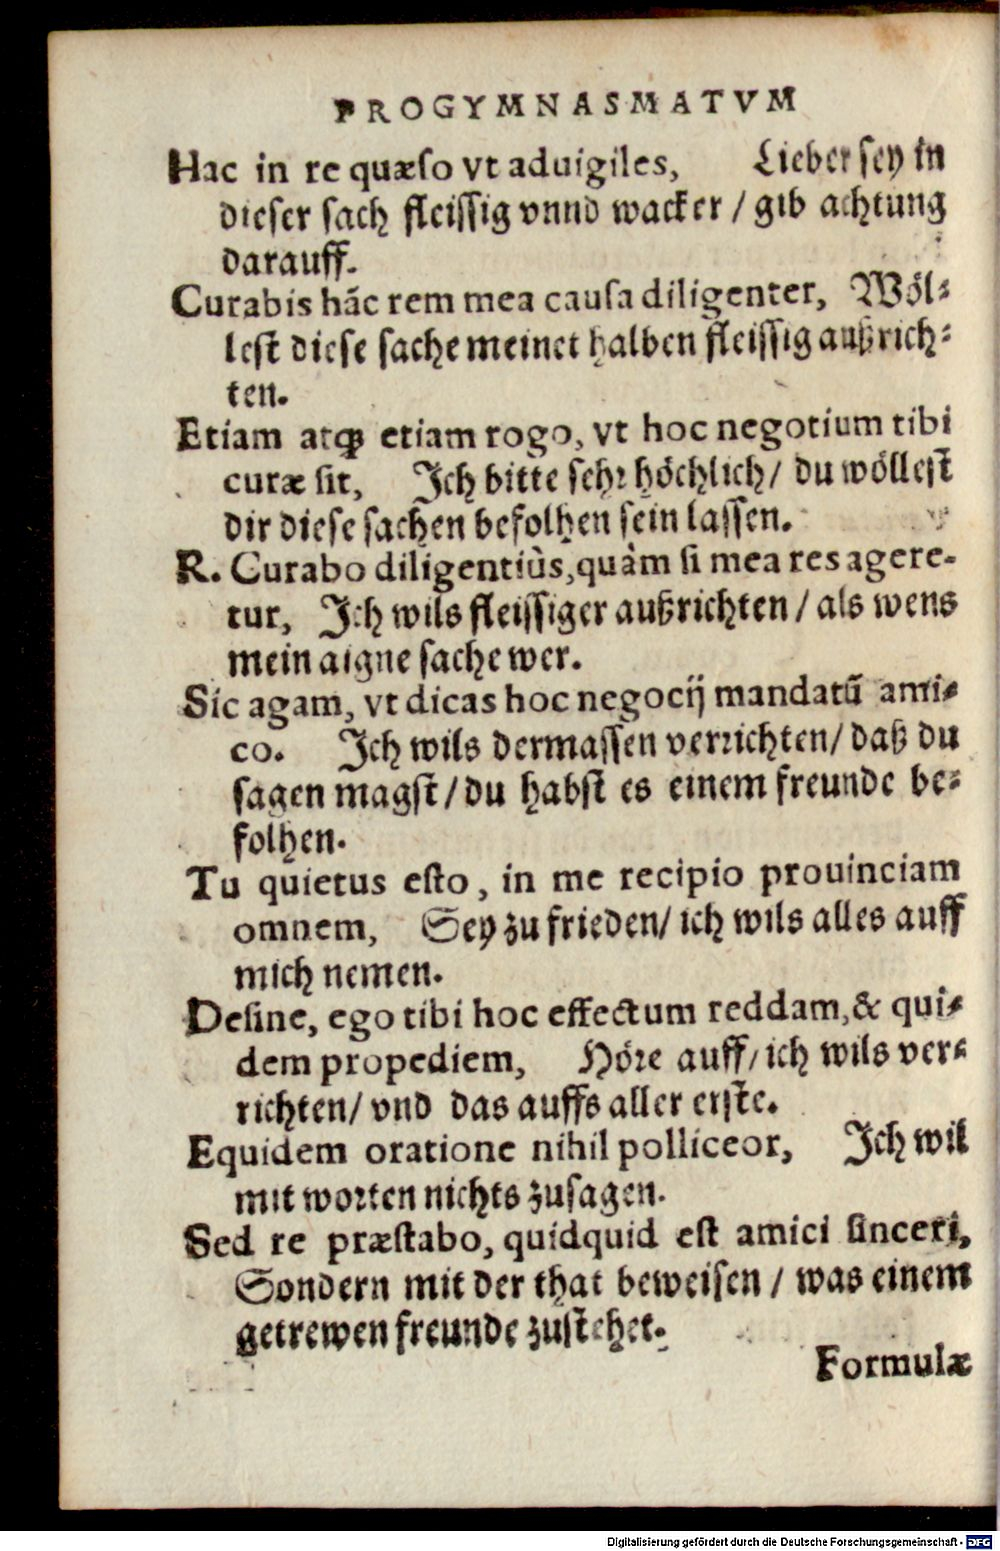 PROGYMNASMATVM
Hac in re quæso vt aduigiles, Lieber sey in
dieser sach fleissig vnnd wacker / gib achtung
darauff.
Curabis hãc rem mea causa diligenter, Wöl-
lest diese sache meinet halben fleissig außrich-
ten.
Etiam atq́ꝫ etiam rogo, vt hoc negotium tibi
curæ sit, Ich bitte sehr höchlich / du wöllest
dir diese sachen befolhen sein lassen.
R. Curabo diligentiùs, quàm si mea res agere-
tur, Ich wils fleissiger außrichten / als wens
mein aigne sache wer.
Sic agam, vt dicas hoc negocij mandatũ ami-
co. Ich wils dermassen verrichten / daß du
sagen magst / du habst es einem freunde be-
folhen.
Tu quietus esto, in me recipio prouinciam
omnem, Sey zu frieden / ich wils alles auff
mich nemen.
Desine, ego tibi hoc effectum reddam, & qui-
dem propediem, Höre auff / ich wils ver-
richten / vnd das auffs aller erste.
Equidem oratione nihil polliceor, Ich wil
mit worten nichts zusagen.
Sed re præstabo, quidquid est amici sinceri,
Sondern mit der that beweisen / was einem
getrewen freunde zustehet.
Formulæ
Digitalisierung gefördert durch die Deutsche Forschungsgemeinschaft - DFG